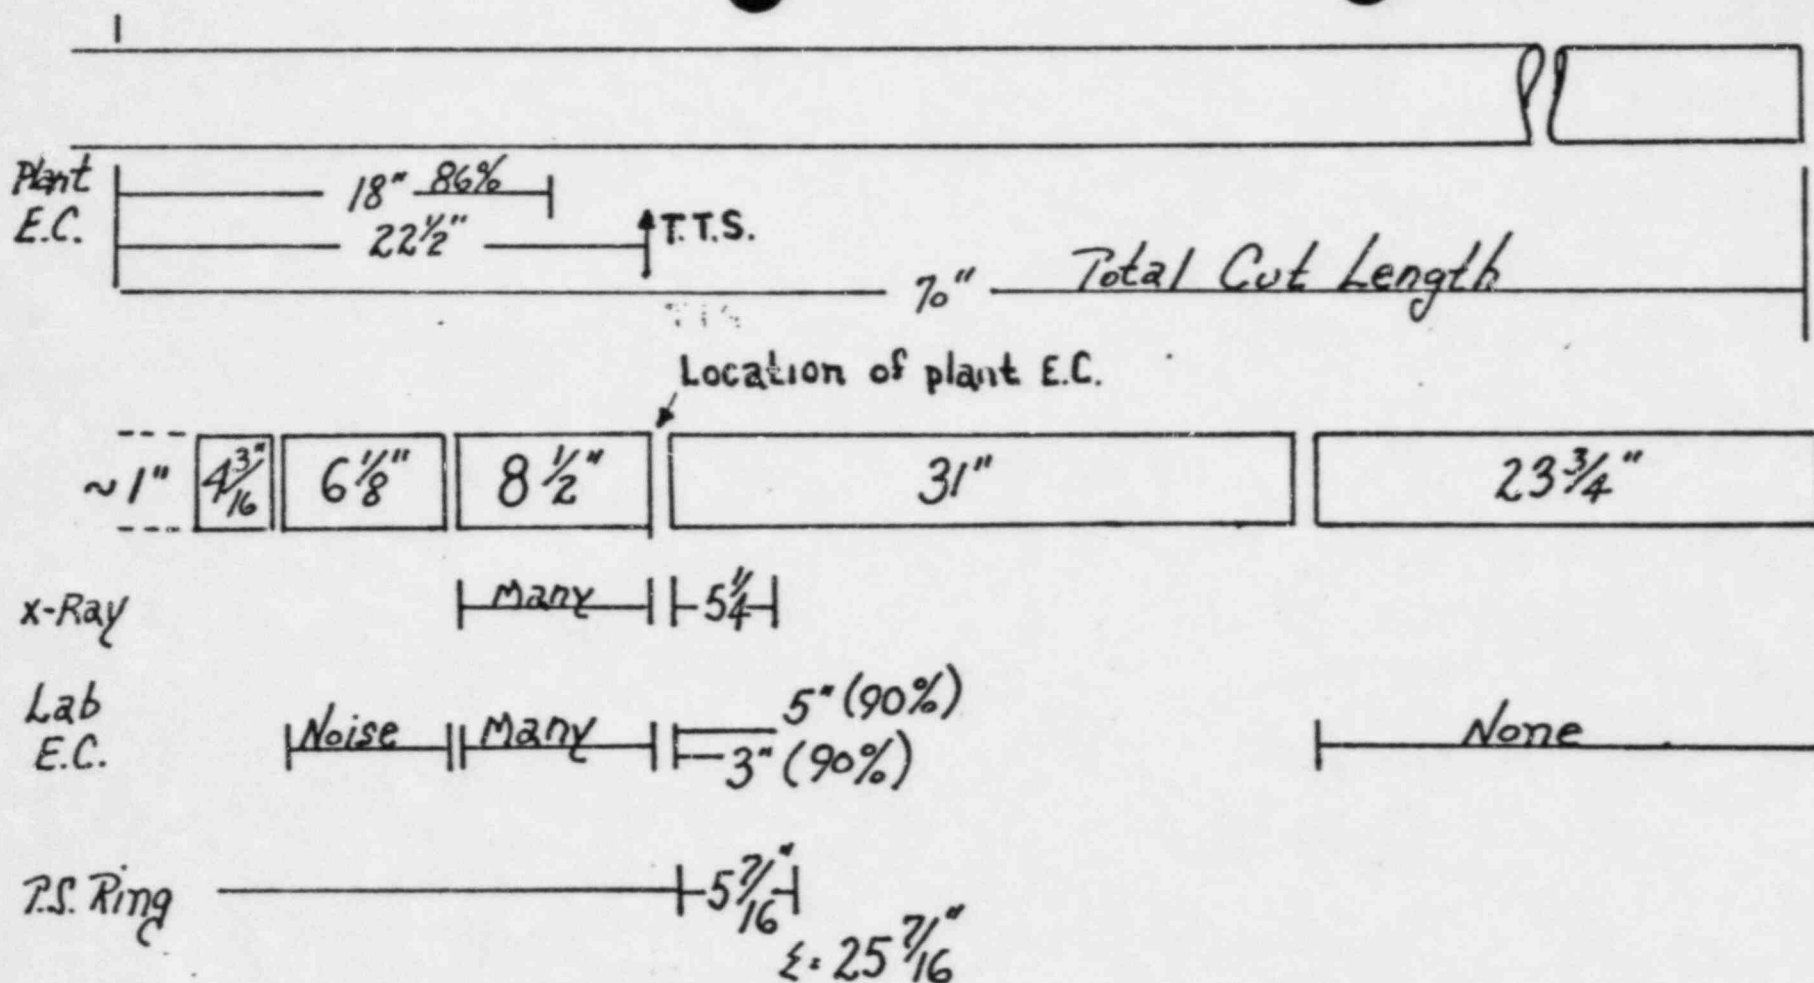 Plant E.C.
18" 86%
22½"
T.T.S.
70" Total Cut Length
Location of plant E.C.
~1" 4 3/16" 6 1/8" 8 1/2" 31" 23 3/4"
X-Ray Many 5 1/4
Lab E.C. Noise Many 5" (90%) None
3" (90%)
P.S. Ring 5 7/16"
Σ= 25 7/16"